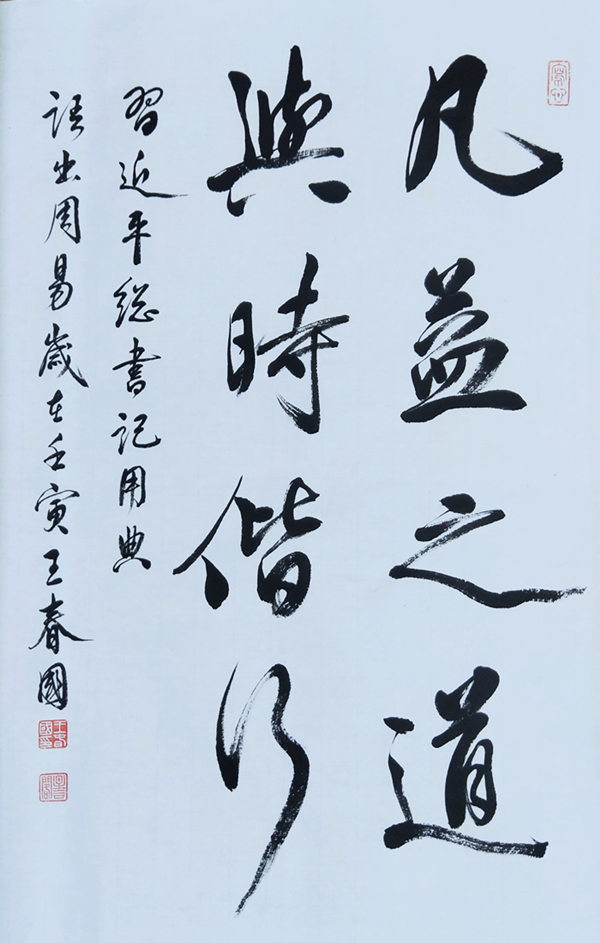 凡益之道
與時偕行
習近平総書记用典
語出周易歲在壬寅王春國